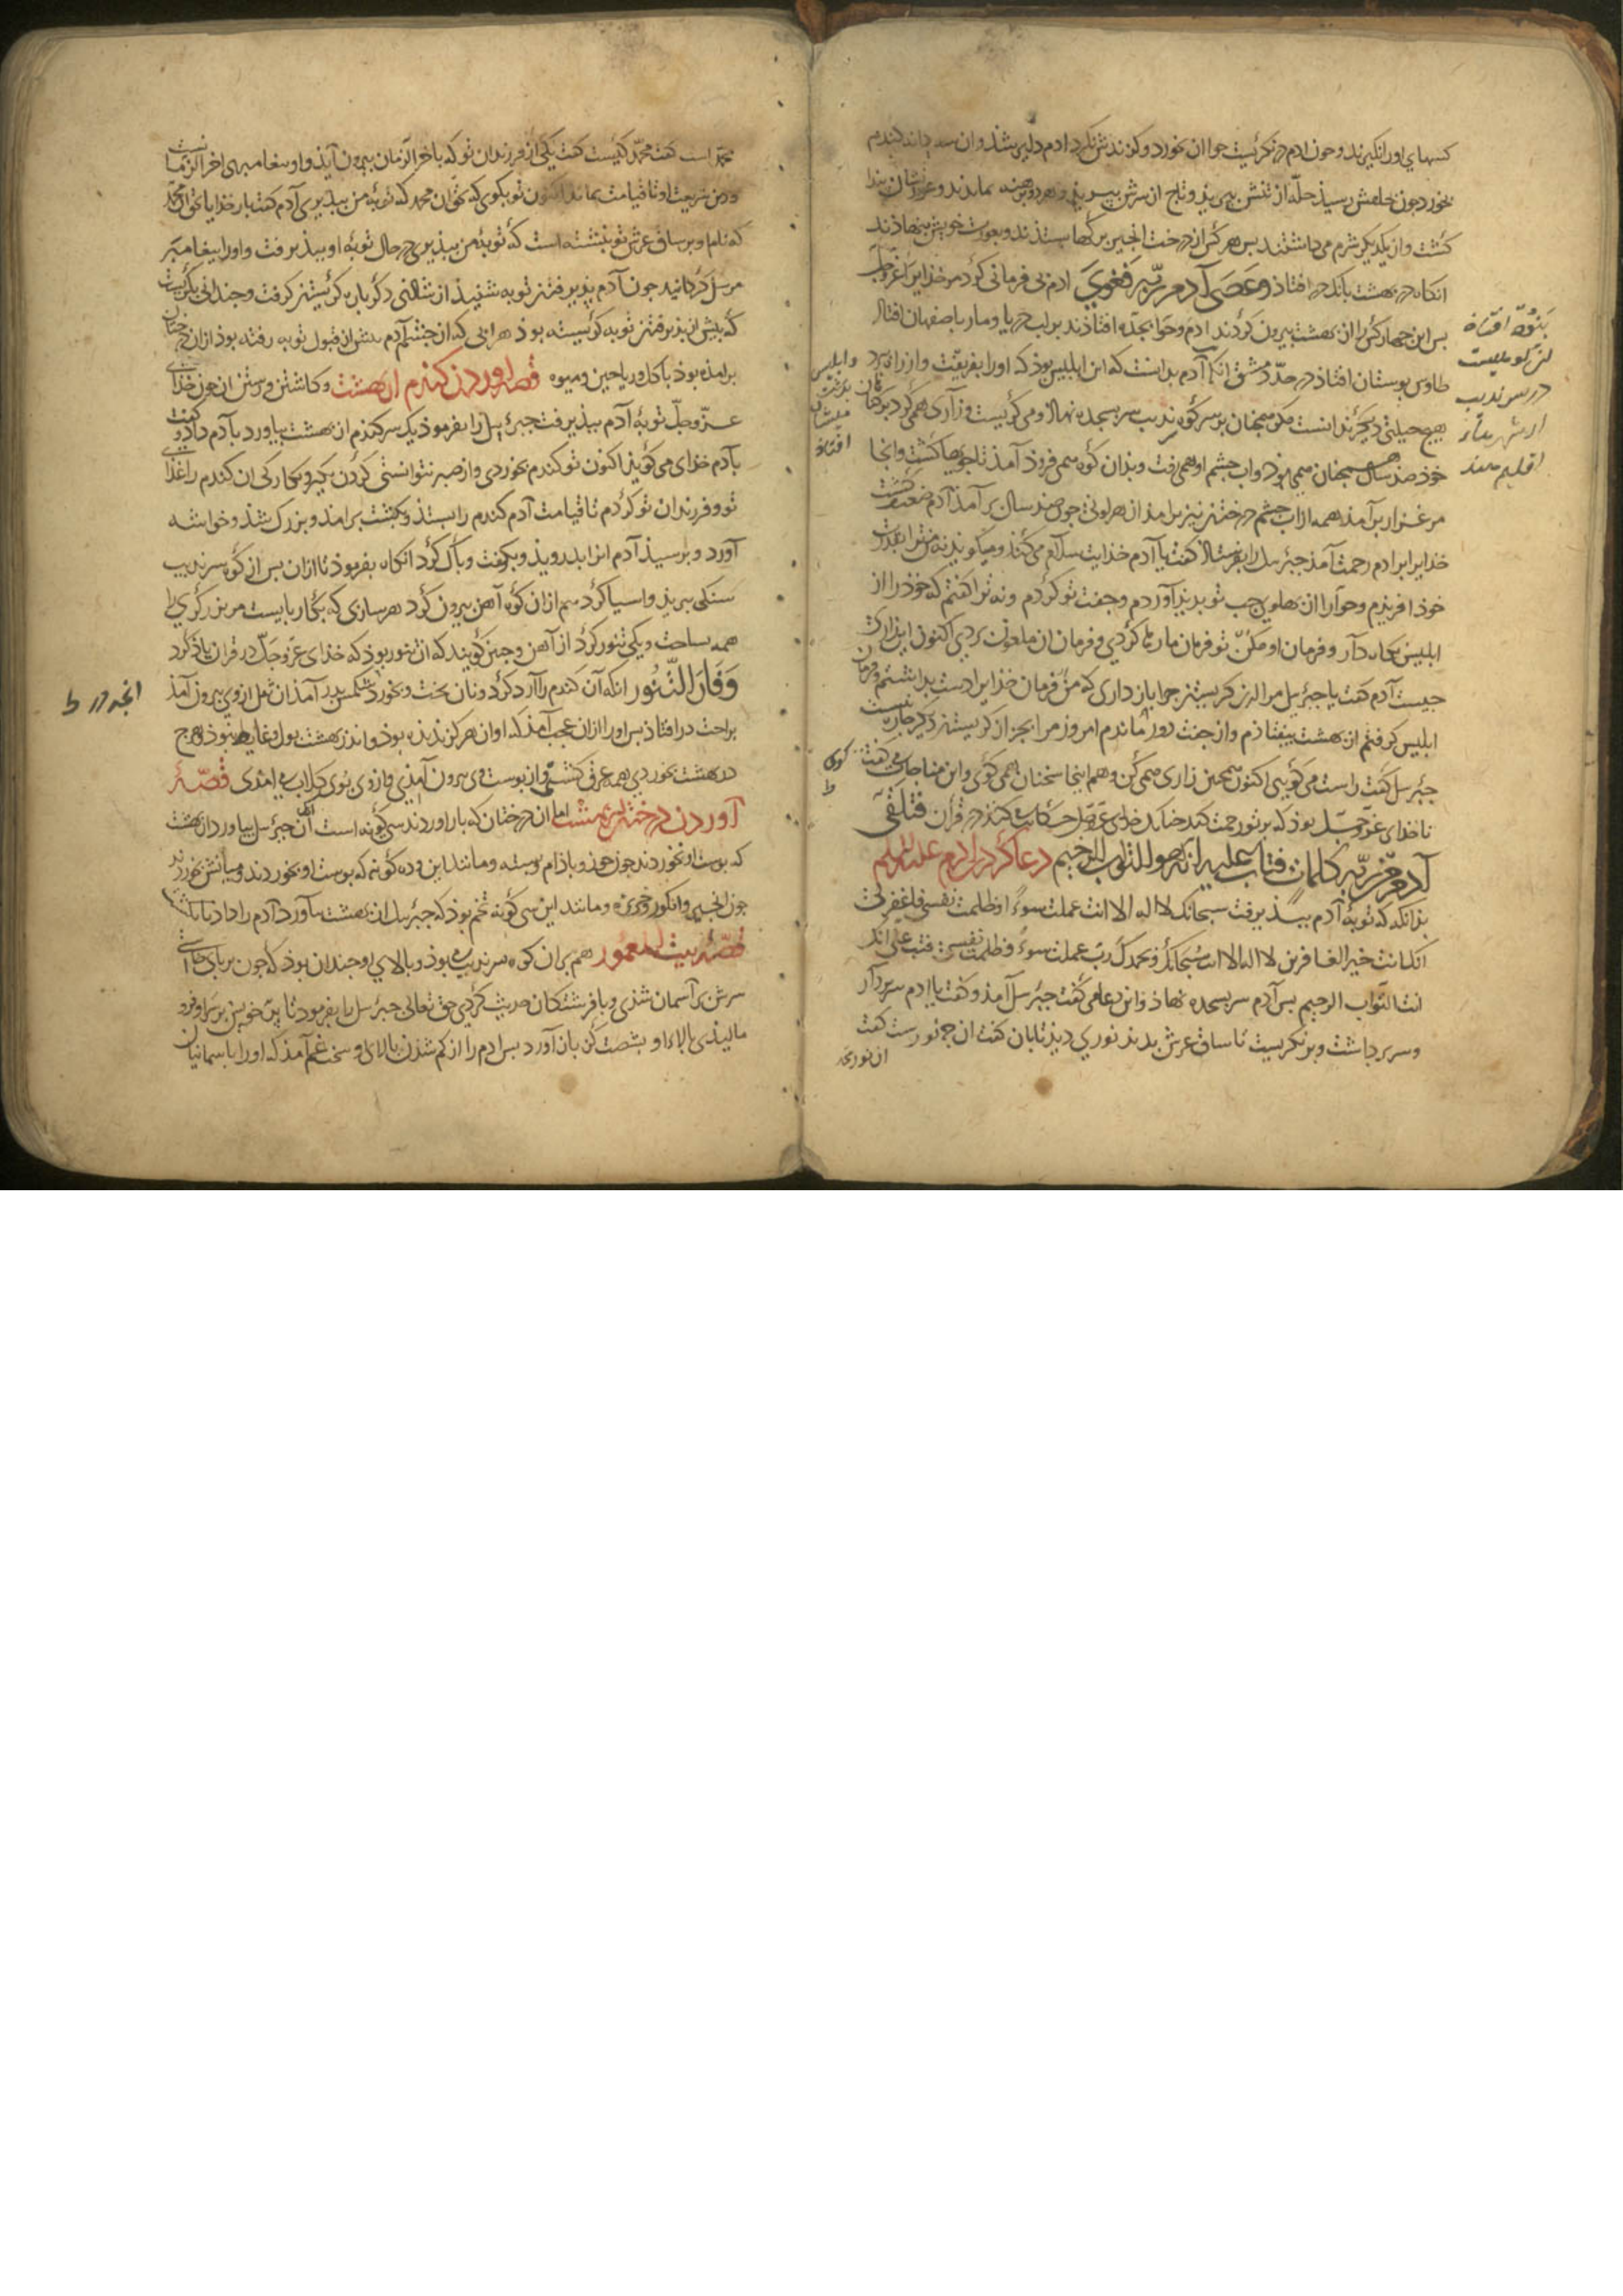 کسهای او را نگیرند و چون آدم در نگریست حوا آن بخورد و گزندش نکرد آدم دلیر شد و آن سه دانه گندم
بخورد چون بحلقش رسید حله از تنش بپرید و تاج از سرش بپرید و هر دو برهنه بماندند و عورتشان پیدا
گشت و از یکدیگر شرم می داشتند بس هر کس از درخت انجیر برگها بستدند و بعورت خویش بنهادند
آنگاه در بهشت بانگ در افتاد وعصی آدم ربه فغوی آدم بی فرمانی کرد مر خدایرا عز و جل
بس این چهار کس را از بهشت بیرون کردند آدم و حوا بجده افتادند بر لب دریا و مار باصفهان افتاد
طاوس ببوستان افتاد در حد دمشق آنگاه آدم بدانست که این ابلیس بود که او را بفریفت و از راه ببرد
هیچ حیلتی دیگر ندانست مگر همچنان بر سر کوه سرندیب سر بسجده نهاد و می گریست و زاری همی کرد بر گناه
خود صد سال همچنان همی بود و آب چشم او همی رفت و بدان کوه همی فرود آمد تا جویها گشت و آنجا
مرغزار برآمد همه از آب چشم و درختان نیز برآمد از هر لونی چون صد سال برآمد آدم ضعیف گشت
خدایرا بر آدم رحمت آمد جبرئیل را بفرستاد گفت یا آدم خدایت سلام می کند و میگوید نه من ترا بقدرت
خود آفریدم و حوا را از پهلوی چپ تو پدید آوردم و جفت تو کردم و نه ترا گفتم که خود را از
ابلیس نگاه دار و فرمان او مکن تو فرمان ما رها کردی و فرمان آن ملعون بردی اکنون این زاری
چیست آدم گفت یا جبرئیل مرا از گریستن چرا باز داری که من فرمان خدایرا دست بداشتم و فرمان
ابلیس گرفتم از بهشت بیفتادم و از جفت دور ماندم امروز مرا بجز از گریستن دیگر چاره نیست
جبرئیل گفت راست می گویی اکنون همچنین زاری همی کن و هم اینجا سخنان همی گوی و این مناجات می گفت
تا خدای عز و جل بود که بر تو رحمت کند چنانک خدای عز و جل حکایت کند در قرآن فتلقی
آدم من ربه کلمات فتاب علیه انه هو التواب الرحیم دعا کردن آدم علیه السلم
بدانکه که توبهٔ آدم بپذیرفت سبحانک لا اله الا انت عملت سوءًا و ظلمت نفسی فاغفر لی
انک انت خیر الغافرین لا اله الا انت سبحانک و بحمدک رب عملت سوءً و ظلمت نفسی فتب علی انک
انت التواب الرحیم بس آدم سر بسجده نهاد و این دعا می گفت جبرئیل آمد و گفت یا آدم سر بردار
و سر برداشت و بر نگریست تا ساق عرش بدید نوری دید تابان گفت آن چه نورست گفت
آن نور محمد
افتاد
در سرندیب
و ابلیس
افتاد
محمد است گفت محمد کیست گفت یکی از فرزندان تو که بآخر الزمان بیرون آید و او پیغامبری آخر الزمانست
و دین شریعت او تا قیامت بماند اکنون تو بگوی که بحق آن محمد که توبهٔ من بپذیری آدم گفت بار خدایا بحق آن محمد
که نام او بر ساق عرش تو نبشته است که توبهٔ من بپذیری در حال توبهٔ او بپذیرفت و او را پیغامبر
مرسل گردانید چون آدم پذیرفتن توبه شنید از شادی دگر باره گریستن گرفت و چندانی بگریست
که پیش از پذیرفتن توبه گریسته بود هر آبی که از چشم آدم پیش از قبول توبه رفته بود از آن درختان
برآمده بود با گل و ریاحین و میوه قصه آوردن گندم از بهشت و کاشتن و رستن آن چون خدای
عز و جل توبهٔ آدم بپذیرفت جبرئیل را بفرمود یک سر گندم از بهشت بیاورد بآدم داد و گفت
یا آدم خدای می گوید اکنون تو گندم بخوردی و از صبر نتوانستی کردن بگیر و بکار کی این گندم را غذای
تو و فرزندان تو کردم تا قیامت آدم گندم را بستد و بکشت برآمد و بزرگ شد و خوشه
آورد و برسید آدم آنرا بدروید و بکوفت و پاک کرد آنگاه بفرمود تا از آن بس از کوه سرندیب
سنگی ببرید و آسیا کرد هم از آن کوه آهن بیرون کرد هر سازی که بکار بایست مر بزرگری را
همه بساخت و یکی تنور کرد از آهن و چنین گویند که آن تنور بود که خدای عز و جل در قرآن یاد کرد
وفار التنور آنگه آن گندم را آرد کرد و نان پخت و بخورد شکمش بدرد آمد آن ثفل از وی بیرون آمد
براحت در افتاد بس او را از آن عجب آمد که او آن هرگز ندیده بود و اندر بهشت بول و غایط نبود هرچ
در بهشت بخوردی همه عرق گشتی و از پوست وی بیرون آمدی و از وی بوی گلاب می آمدی قصهٔ
آوردن درختان از بهشت اما آن درختان که بار آوردند سی گونه است آن جبرئیل بیاورد از بهشت
که پوست او نخوردند چون جوز و بادام و پسته و مانند این و ده گونه که پوست او بخوردند و میانش نخورند
چون انجیر و انگور و خربزه و مانند این سی گونه تخم بود که جبرئیل از بهشت بیاورد آدم را داد تا بکشت
قصهٔ بیت المعمور هم بر آن کوه سرندیب می بود و بالای او چندان بود که چون بر پای خاستی
سرش بر آسمان شدی و با فریشتگان حدیث کردی حق تعالی جبرئیل را بفرمود تا پر خویش بر سر او فرو
مالیدی بالای او بشصت گز باز آورد بس آدم را از کم شدن بالای او سخت غم آمد که او را با آسمانیان